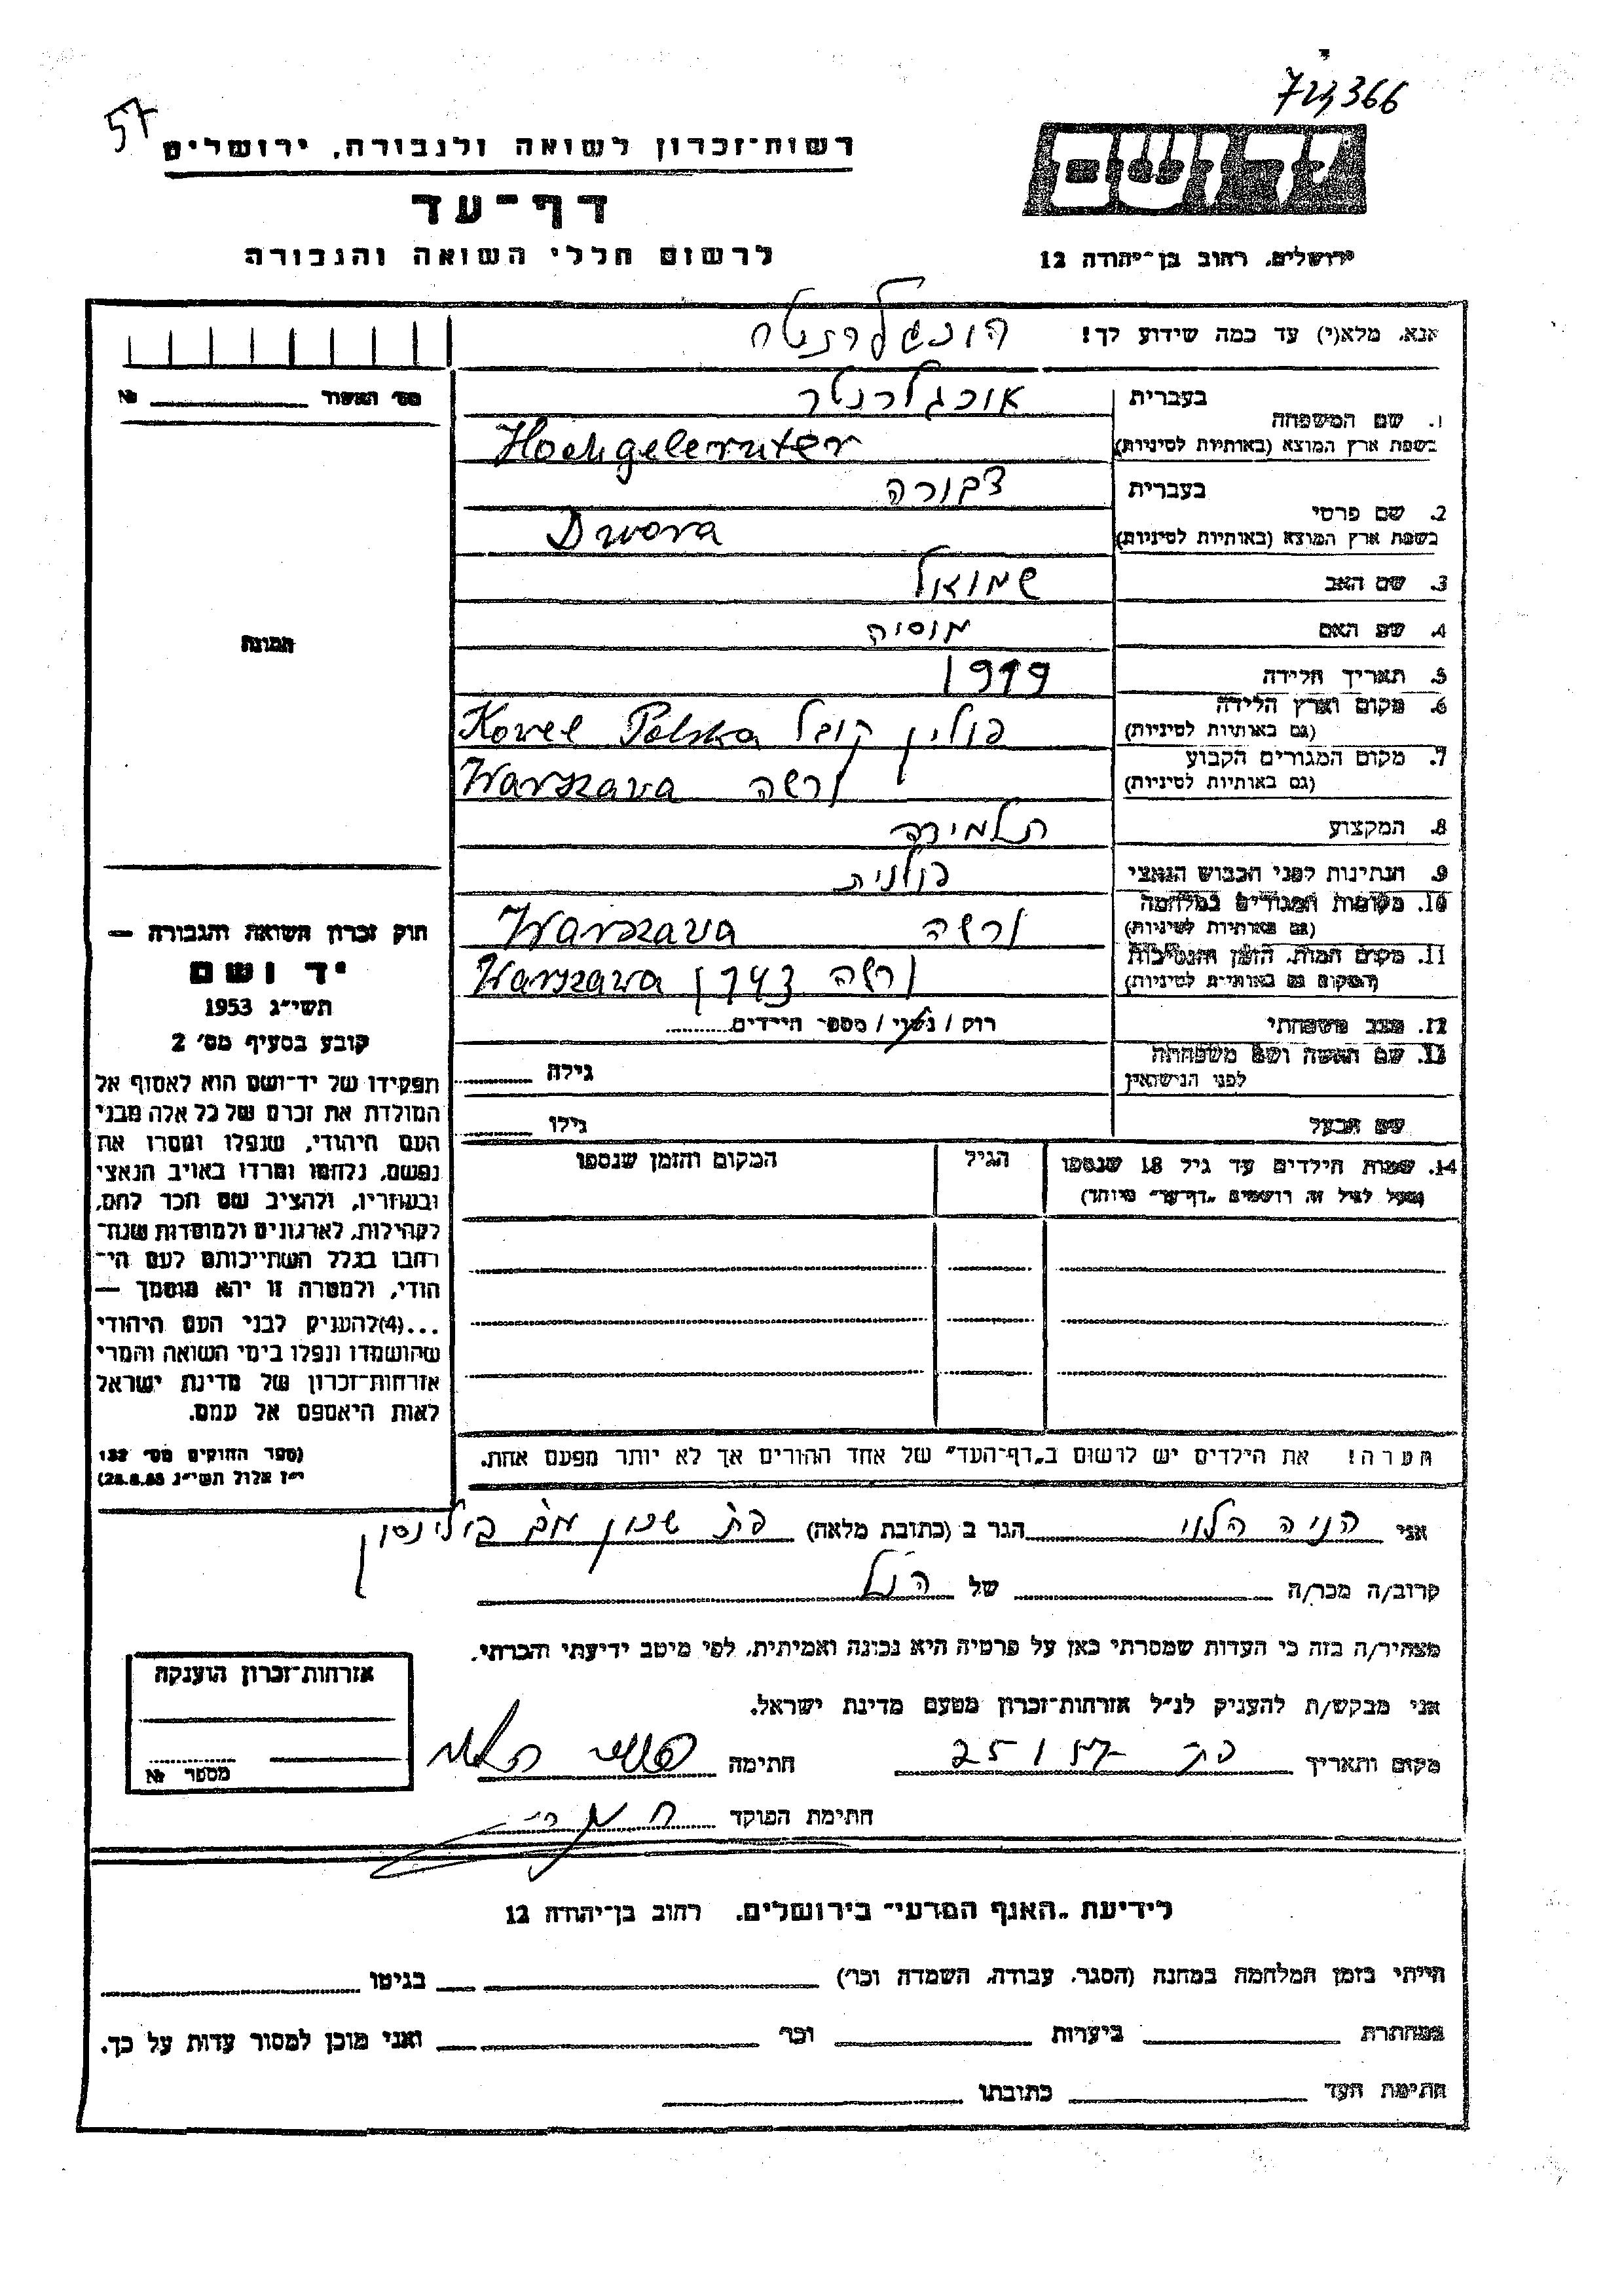 57
רשות-זכרון לשואה ולגבורה, ירושלים
דף-עד
לרשום חללי השואה והגבורה
ירושלים, רחוב בן-יהודה 12
אנא, מלא(י) עד כמה שידוע לך!
מס' האשור № 
1. שם המשפחה בעברית
בשפת ארץ המוצא (באותיות לטיניות) Hochgelernter
2. שם פרטי בעברית דבורה
בשפת ארץ המוצא (באותיות לטיניות) Dwora
3. שם האב שמואל
4. שם האם מוסיה
5. תאריך הלידה
6. מקום וארץ הלידה פולין קובל Kovel Polska
(גם באותיות לטיניות)
7. מקום המגורים הקבוע ורשה Warszawa
(גם באותיות לטיניות)
8. המקצוע תלמידה
9. הנתינות לפני הכבוש הנאצי פולנית
10. מקומות המגורים במלחמה ורשה Warszawa
(גם באותיות לטיניות)
11. מקום המות, הזמן והנסיבות ורשה Warszawa
(המקום גם באותיות לטיניות)
12. מצב משפחתי רוק / נשוי / מספר הילדים
13. שם האשה ושם משפחתה גילה
לפני הנישואין
שם הבעל גילו
14. שמות הילדים עד גיל 18 שנספו הגיל המקום והזמן שנספו
(מעל לגיל זה רושמים "דף-עד" מיוחד)
הערה! את הילדים יש לרשום ב"דף-העד" של אחד ההורים אך לא יותר מפעם אחת.
התמונה
חוק זכרון השואה והגבורה —
יד ושם
תשי"ג 1953
קובע בסעיף מס' 2
תפקידו של יד-ושם הוא לאסוף אל
המולדת את זכרם של כל אלה מבני
העם היהודי, שנפלו ומסרו את
נפשם, נלחמו ומרדו באויב הנאצי
ובעוזריו, ולהציב שם וזכר להם,
לקהילות, לארגונים ולמוסדות שנח-
רבו בגלל השתייכותם לעם הי-
הודי, ולמטרה זו יהא מוסמך —
...(4)להעניק לבני העם היהודי
שהושמדו ונפלו בימי השואה והמרי
אזרחות-זכרון של מדינת ישראל
לאות היאספם אל עמם.
(ספר החוקים מס' 132
י"ז אלול תשי"ג 28.8.53)
אני הניה הלוי הגר ב (כתובת מלאה) פת שכון בילינסון
קרוב/ה מכר/ה של הנ"ל
מצהיר/ה בזה כי העדות שמסרתי כאן על פרטיה היא נכונה ואמיתית, לפי מיטב ידיעתי והכרתי.
אני מבקש/ת להעניק לנ"ל אזרחות-זכרון מטעם מדינת ישראל.
מקום ותאריך חתימה
חתימת הפוקד
אזרחות-זכרון הוענקה
מספר №
לידיעת "האגף המדעי" בירושלים, רחוב בן-יהודה 12
הייתי בזמן המלחמה במחנה (הסגר, עבודה, השמדה וכו') בגיטו
במחתרת ביערות וכו' ואני מוכן למסור עדות על כך.
חתימת העד כתובתו